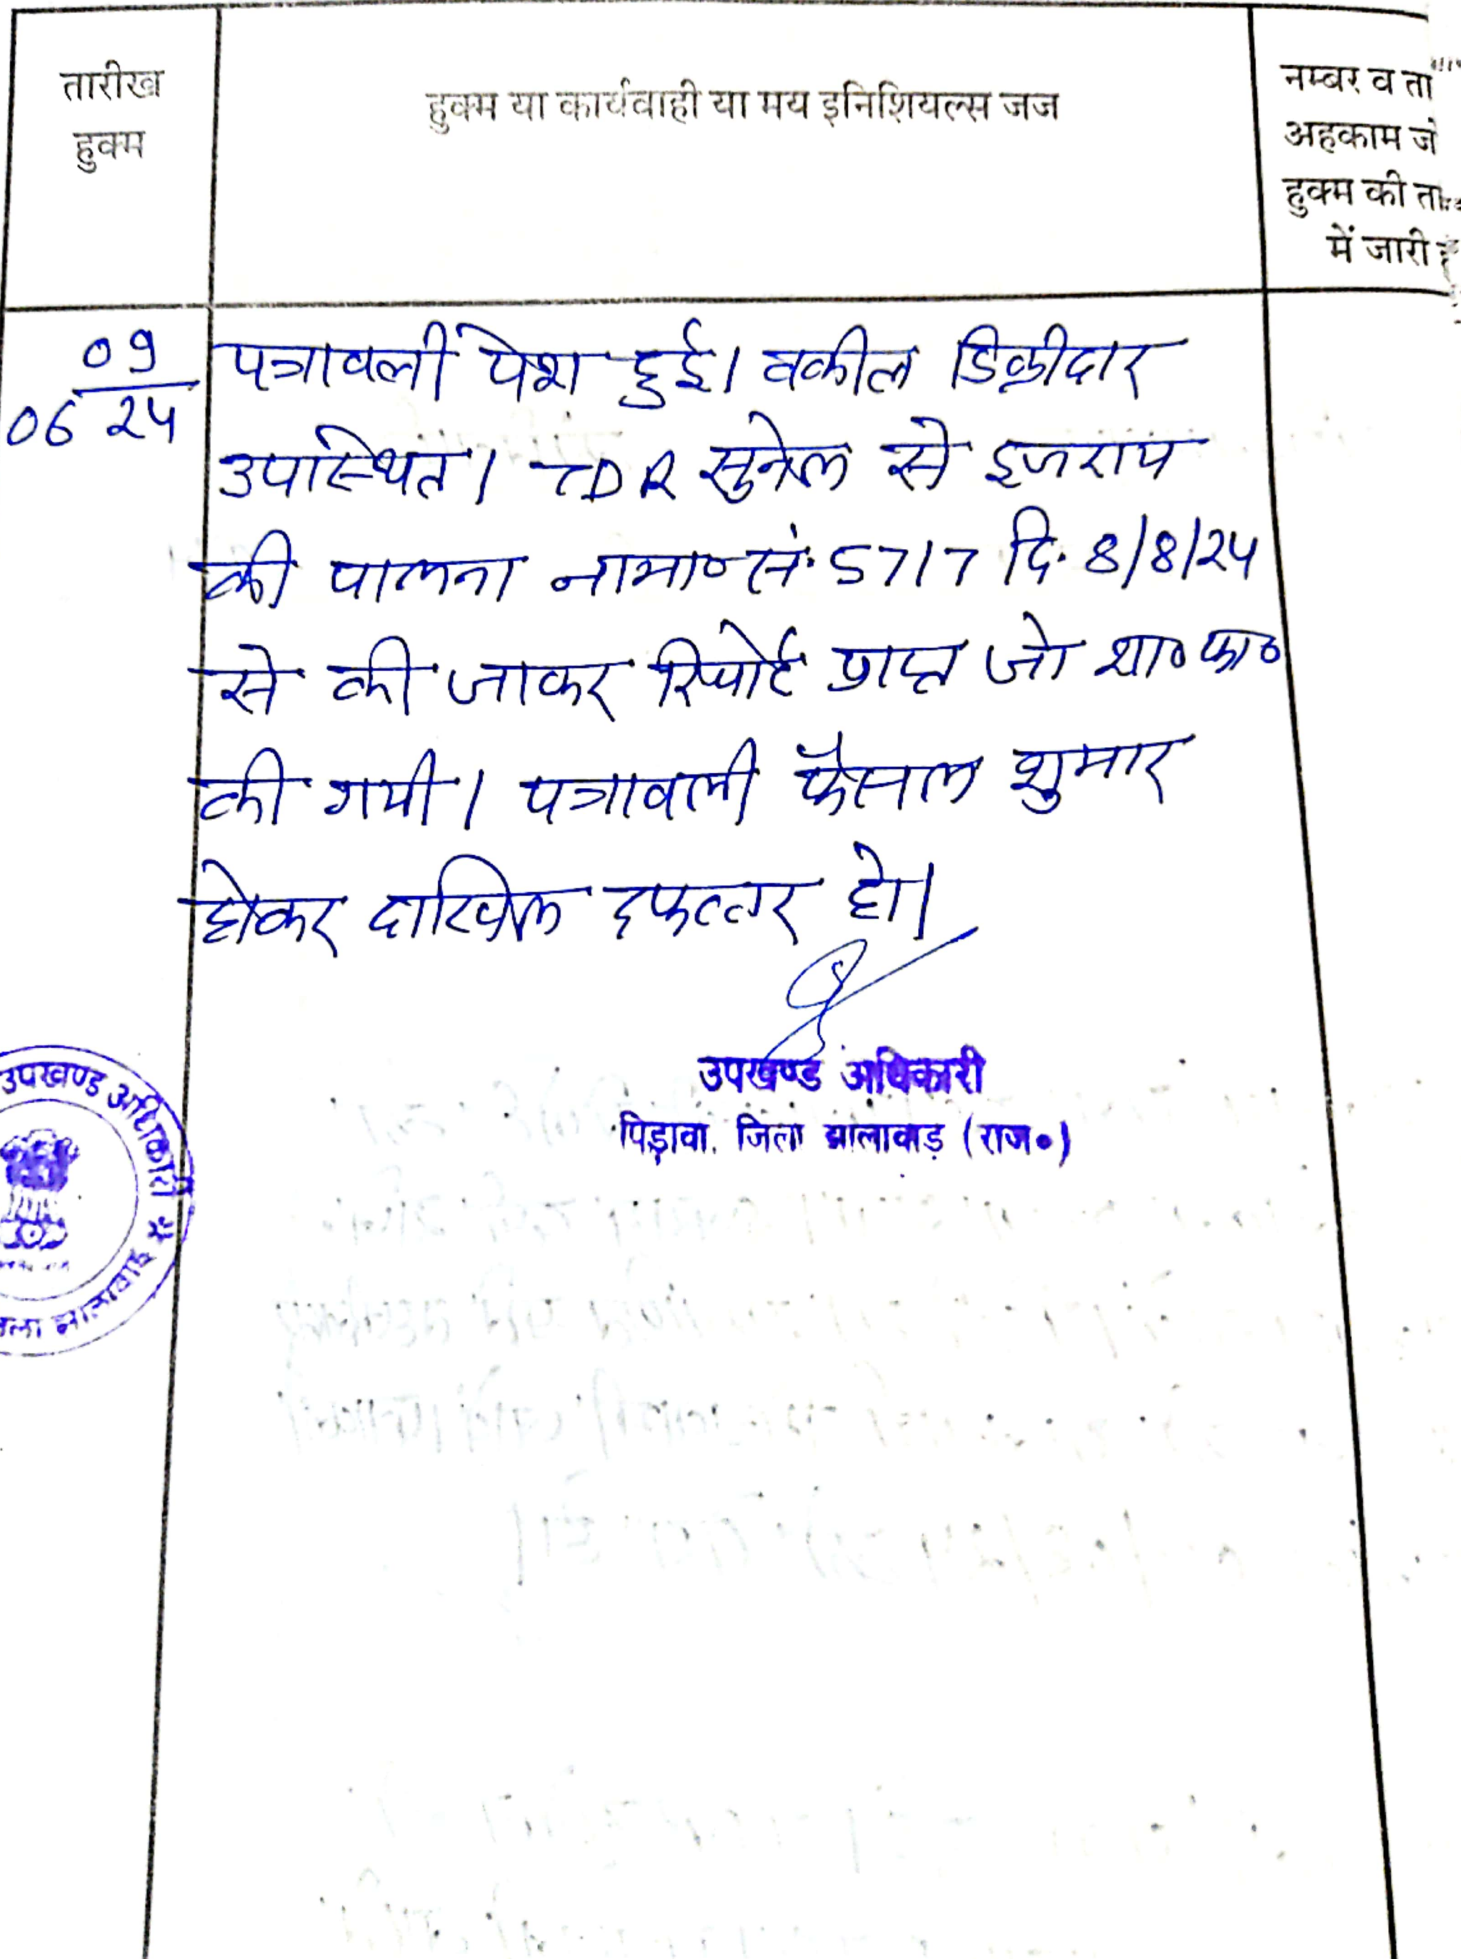 तारीख
हुक्म
हुक्म या कार्यवाही या मय इनिशियल्स जज
नम्बर व ता
अहकाम जो
हुक्म की ता
में जारी
09
06 24
पत्रावली पेश हुई। वकील डिक्रीदार
उपस्थित। TDR सुनेल से इजराय
की पालना नामा० सं. 5717 दि. 8/8/24
से की जाकर रिपोर्ट प्राप्त जो शा० फा०
की गयी। पत्रावली फैसल शुमार
होकर दाखिल दफ्तर हो।
उपखण्ड अधिकारी
पिड़ावा, जिला झालावाड़ (राज०)
उपखण्ड अधिकारी
झालावाड़